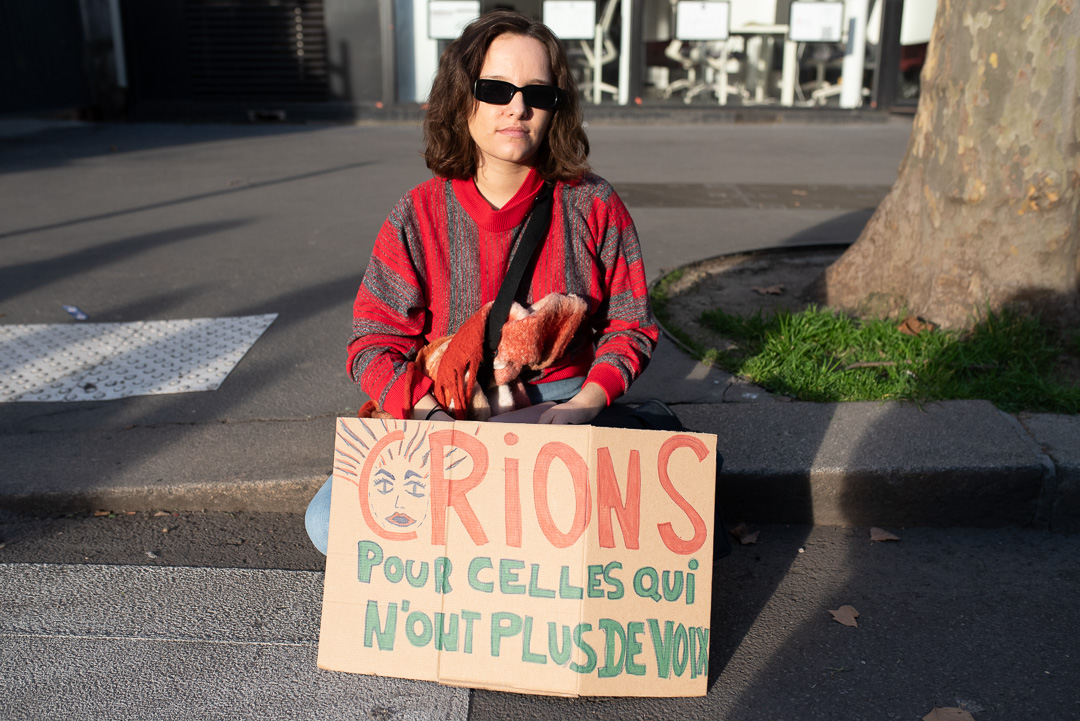 CRiONS
POUR CELLES QUi
N'ONT PLUS DE VOIX